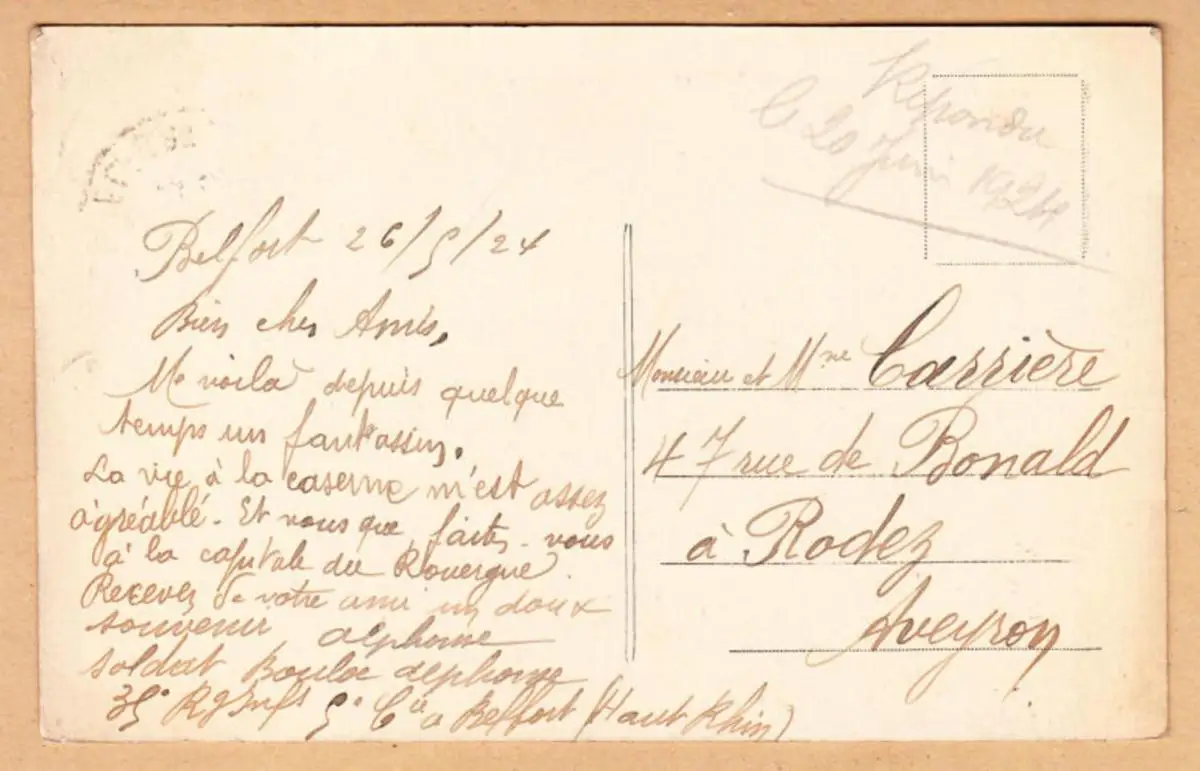 Répondu
le 20 Juin 1924
Belfort 26/5/24
Bien cher Amis,
Me voilà depuis quelque
temps un fantassin.
La vie à la caserne m'est assez
agréablé. Et vous que faites-vous
à la capitale du Rouergue.
Recevez de votre ami un doux
souvenir alphonse
soldat Boulac alphonse
35e Rg Inft 5e Cie a Belfort (Haut Rhin)
Monsieur et Mme Carrière
47 rue de Bonald
à Rodez
Aveyron